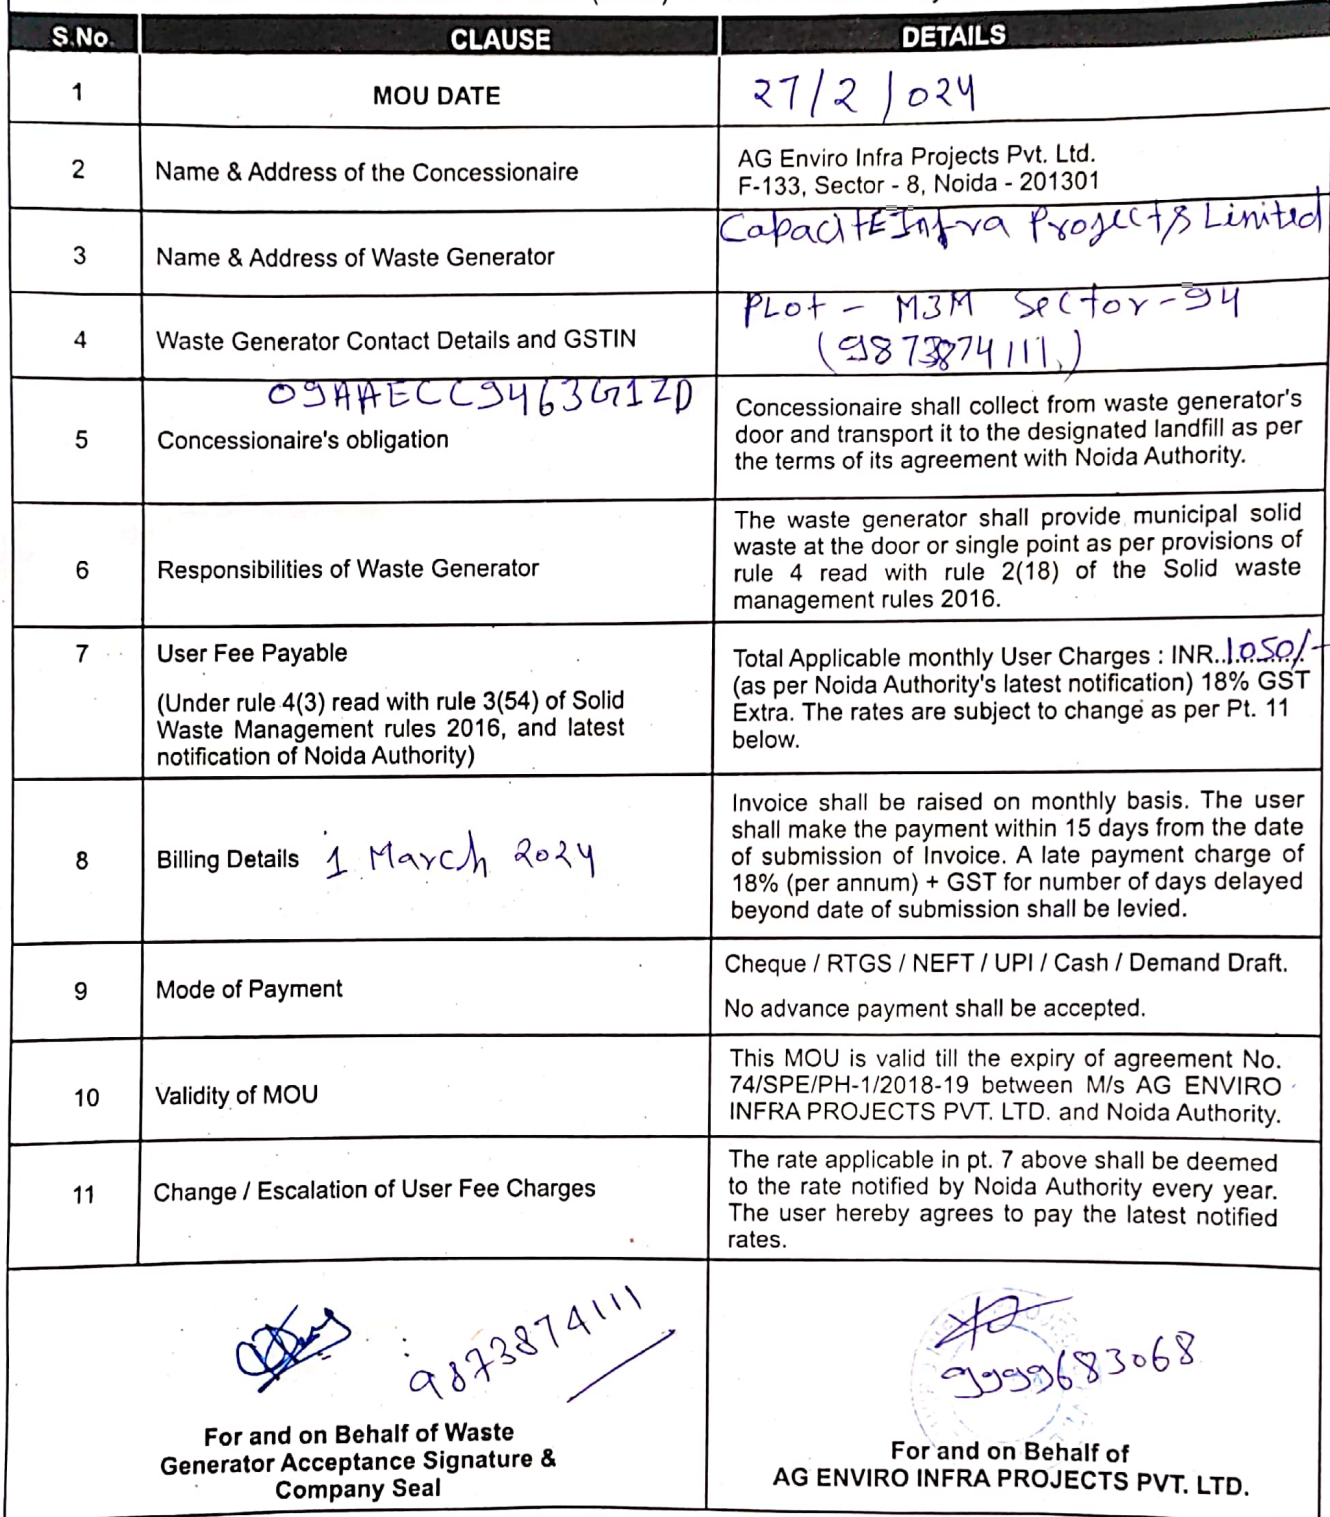 S.No. CLAUSE DETAILS
1 MOU DATE 27/2/024
2 Name & Address of the Concessionaire
AG Enviro Infra Projects Pvt. Ltd.
F-133, Sector - 8, Noida - 201301
3 Name & Address of Waste Generator
CapacitE Infra Projects Limited
4 Waste Generator Contact Details and GSTIN
PLot - M3M Sector-94
(9873874111,)
09AAECC9463G1ZD
5 Concessionaire's obligation
Concessionaire shall collect from waste generator's
door and transport it to the designated landfill as per
the terms of its agreement with Noida Authority.
6 Responsibilities of Waste Generator
The waste generator shall provide municipal solid
waste at the door or single point as per provisions of
rule 4 read with rule 2(18) of the Solid waste
management rules 2016.
7 User Fee Payable
(Under rule 4(3) read with rule 3(54) of Solid
Waste Management rules 2016, and latest
notification of Noida Authority)
Total Applicable monthly User Charges : INR..1050/-
(as per Noida Authority's latest notification) 18% GST
Extra. The rates are subject to change as per Pt. 11
below.
8 Billing Details 1 March 2024
Invoice shall be raised on monthly basis. The user
shall make the payment within 15 days from the date
of submission of Invoice. A late payment charge of
18% (per annum) + GST for number of days delayed
beyond date of submission shall be levied.
9 Mode of Payment
Cheque / RTGS / NEFT / UPI / Cash / Demand Draft.
No advance payment shall be accepted.
10 Validity of MOU
This MOU is valid till the expiry of agreement No.
74/SPE/PH-1/2018-19 between M/s AG ENVIRO
INFRA PROJECTS PVT. LTD. and Noida Authority.
11 Change / Escalation of User Fee Charges
The rate applicable in pt. 7 above shall be deemed
to the rate notified by Noida Authority every year.
The user hereby agrees to pay the latest notified
rates.
9873874111
For and on Behalf of Waste
Generator Acceptance Signature &
Company Seal
9999683068
For and on Behalf of
AG ENVIRO INFRA PROJECTS PVT. LTD.